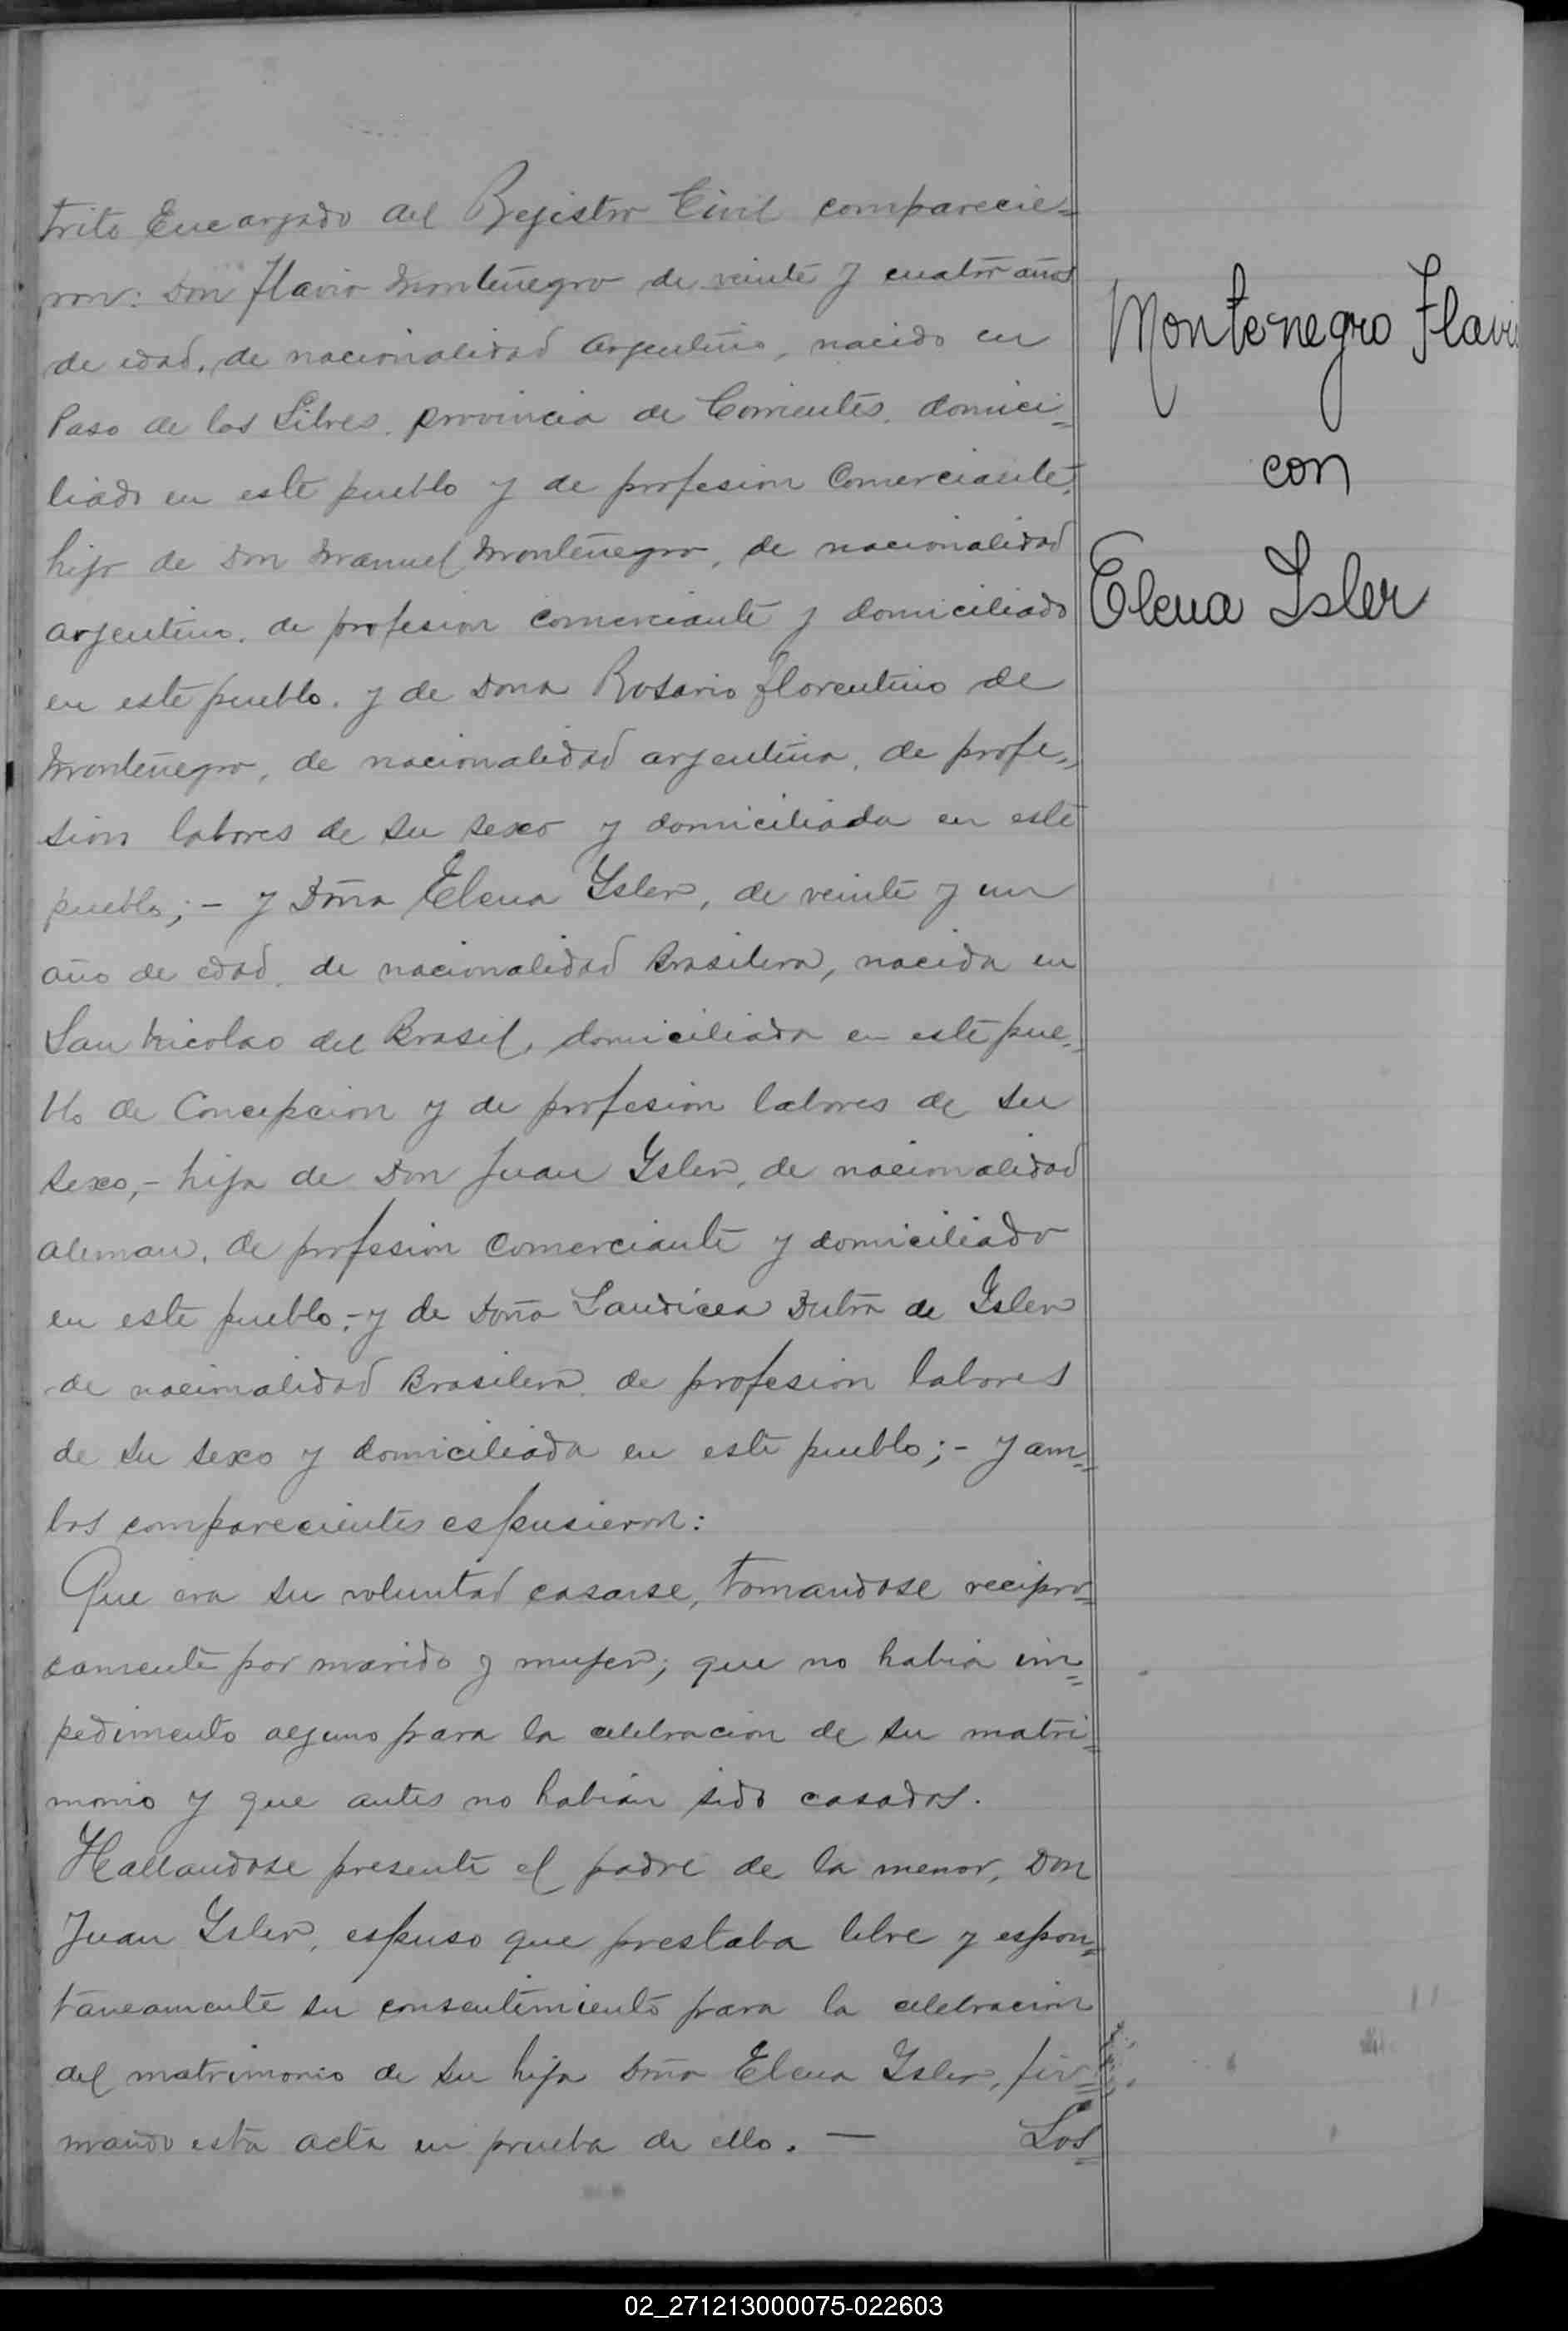 trito Encargado del Registro Civil comparecie=
ron: Don Flavio Montenegro de veinte y cuatro años
de edad, de nacionalidad Argentino, nacido en
Paso de los Libres, provincia de Corrientes, domici=
liado en este pueblo y de profesion Comerciante,
hijo de Don Manuel Montenegro, de nacionalidad
argentino, de profesion comerciante y domiciliado
en este pueblo, y de Dona Rosario Florentino de
Montenegro, de nacionalidad argentina, de profe=
sion labores de su sexo y domiciliada en este
pueblo; - y Dña Elena Ysler, de veinte y un
año de edad, de nacionalidad Brasilera, nacida en
San Nicolao del Brasil, domiciliada en este pue=
blo de Concepcion y de profesion labores de su
sexo, - hija de Don Juan Ysler, de nacionalidad
aleman, de profesion Comerciante y domiciliado
en este pueblo; - y de Doña Laudicea Dutra de Isler
de nacionalidad Brasilera, de profesion labores
de su sexo y domiciliada en este pueblo; - y am=
bos comparecientes espusieron:
Que era su voluntad casarse, tomandose recipro=
camente por marido y mujer; que no habia im=
pedimento alguno para la celebracion de su matri=
monio y que antes no habian sido casados.
Hallandose presente el padre de la menor, Don
Juan Ysler, espuso que prestaba libre y espon=
táneamente su consentimiento para la celebracion
del matrimonio de su hija Dña Elena Ysler, fir=
mando esta acta en prueba de ello. — Los
Montenegro Flavio
con
Elena Isler
02_271213000075-022603